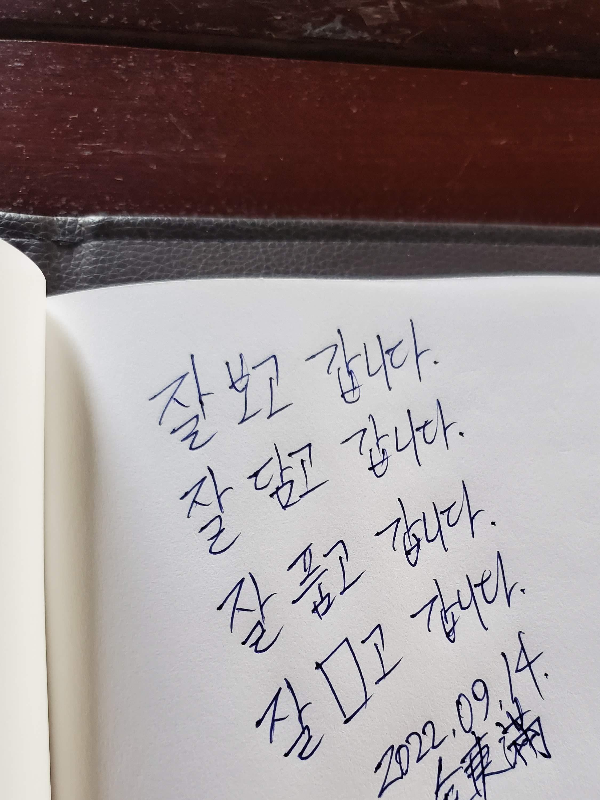 잘 보고 갑니다.
잘 담고 갑니다.
잘 품고 갑니다.
잘 □고 갑니다.
2022.09.14.
東滿